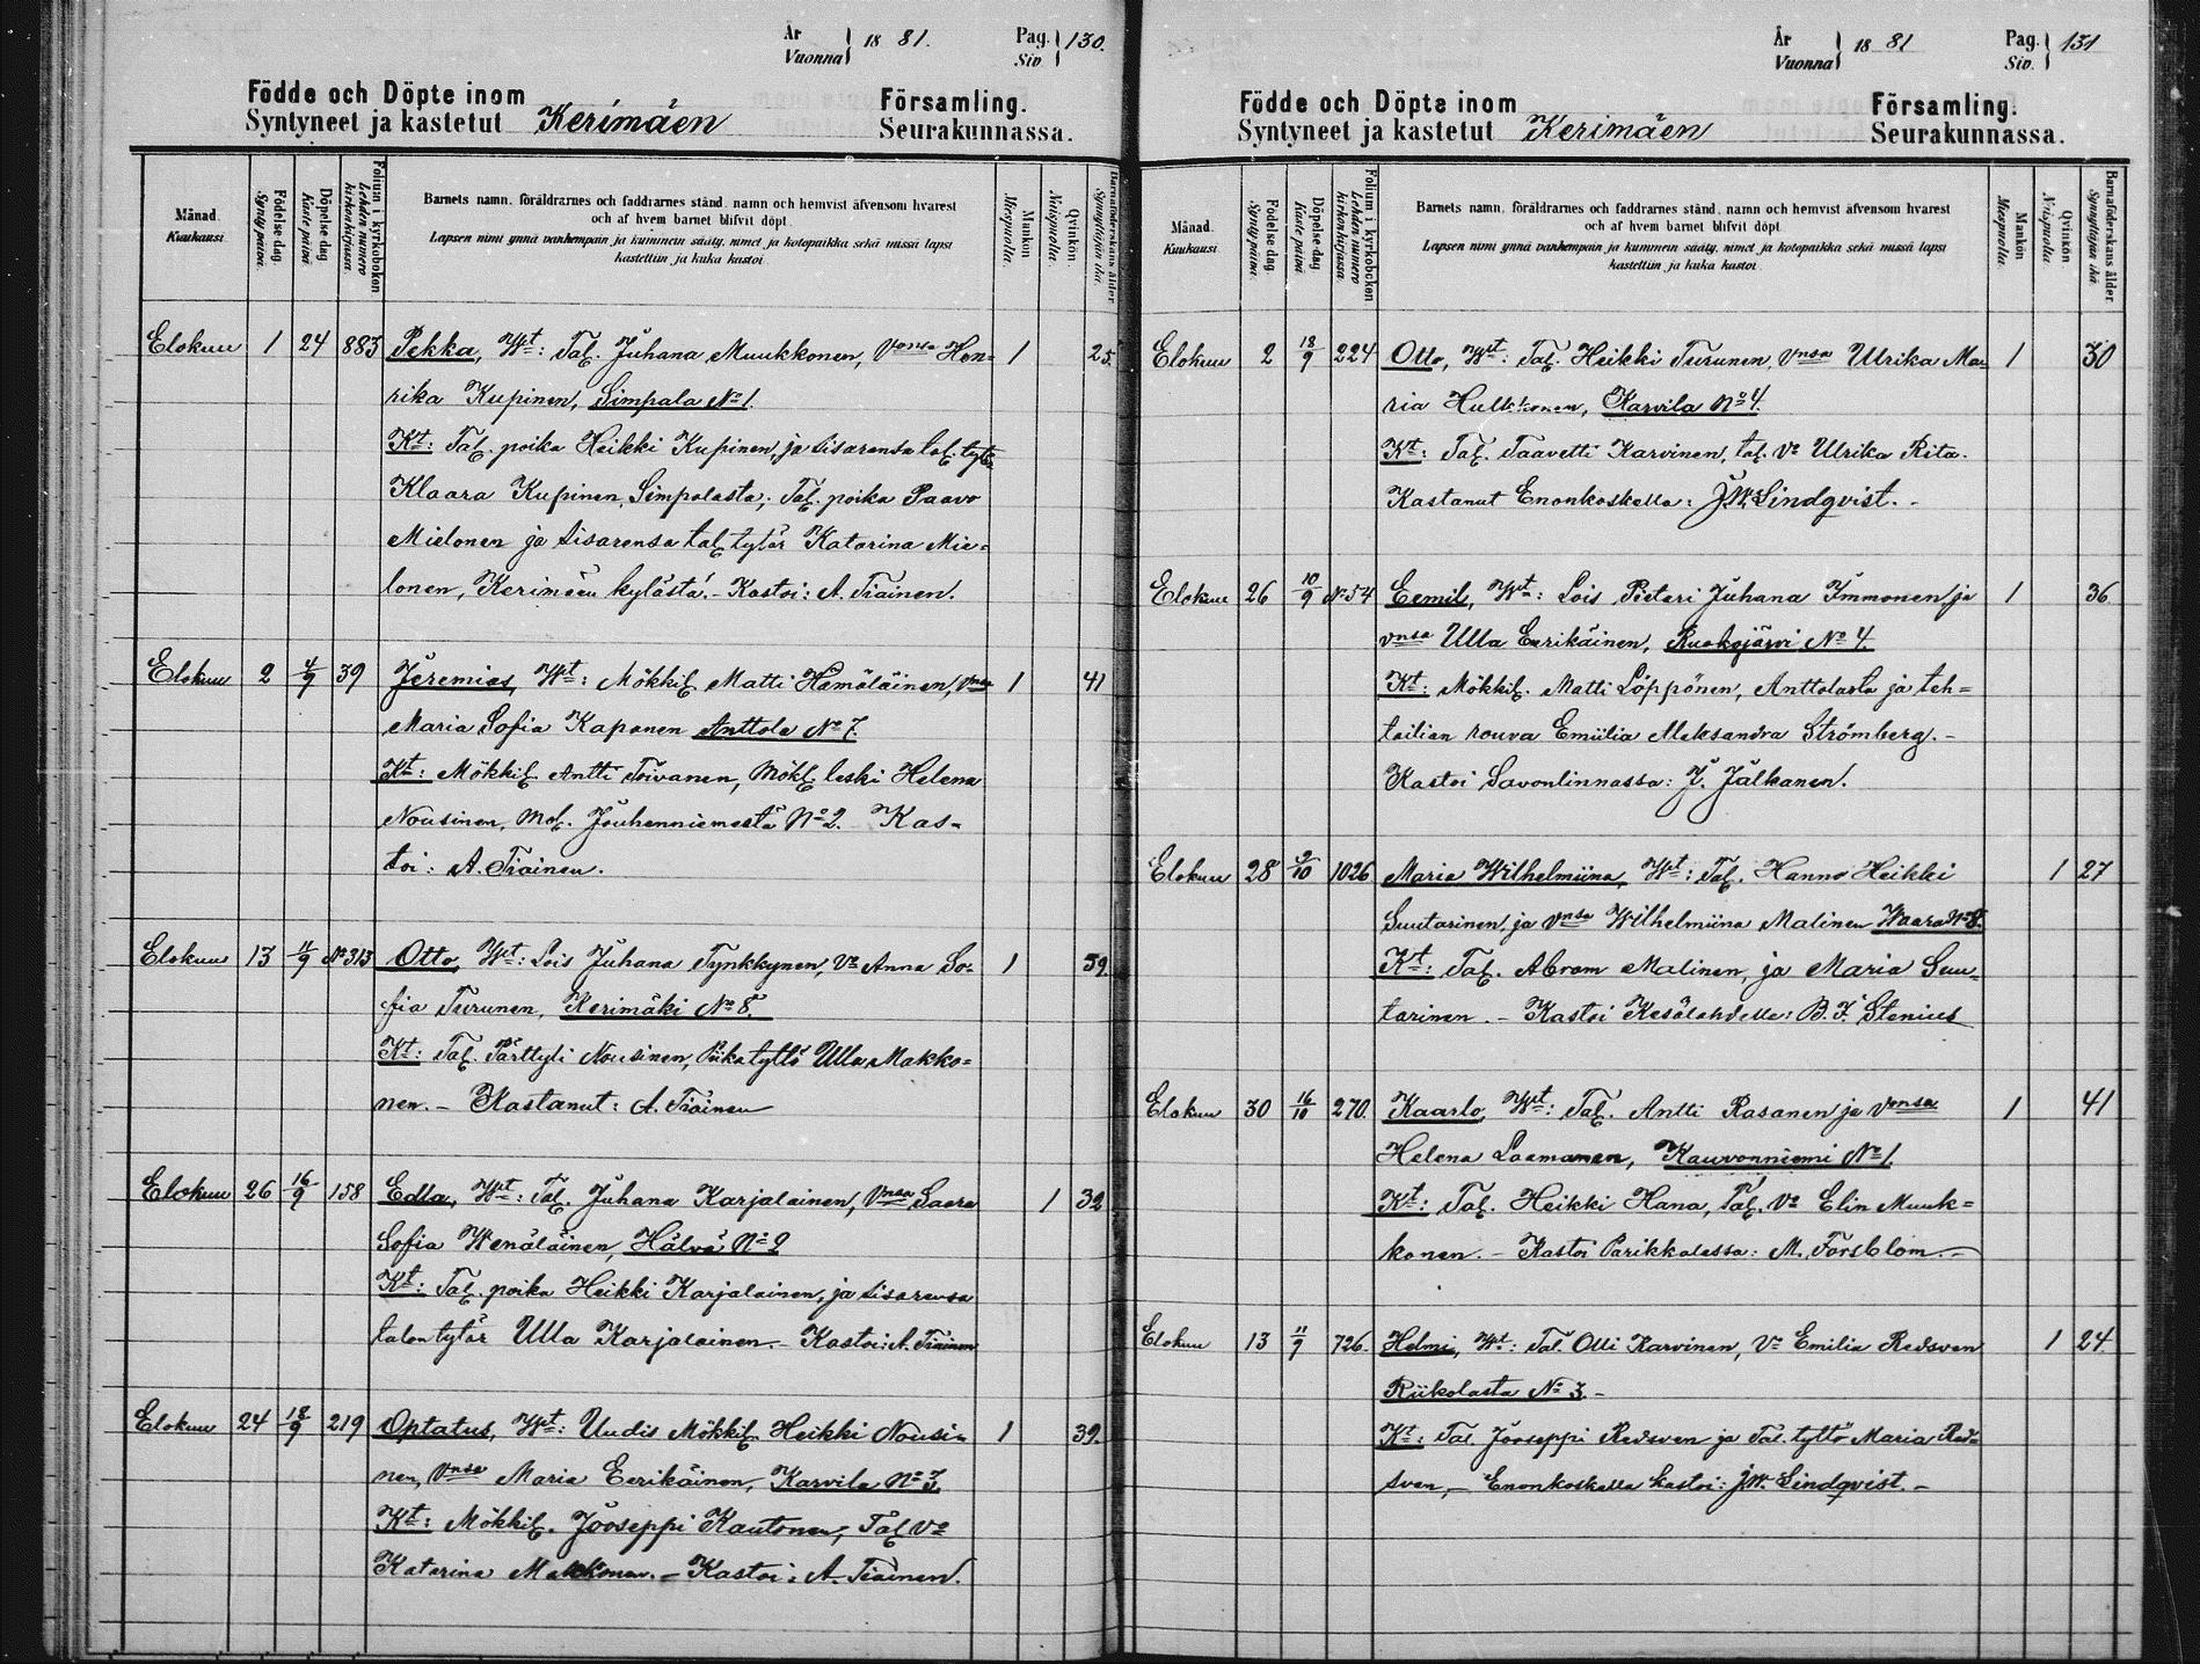 År
Vuonna 1881.
Pag.
Siv. 130.
Födde och Döpte inom Församling.
Syntyneet ja kastetut Kerimäen Seurakunnassa.
Månad.
Kuukausi.
Födelse dag.
Synty päivä.
Döpelse dag
Kaste päivä
Folium i kyrkoboken
Lehden numero kirkonkirjassa
Barnets namn, föräldrarnes och faddrarnes stånd, namn och hemvist äfvensom hvarest
och af hvem barnet blifvit döpt.
Lapsen nimi ynnä vanhempain ja kummein sääty, nimet ja kotopaikka sekä missä lapsi
kastettiin ja kuka kastoi
Mankön
Miespuolia.
Qvinkön.
Naispuolia.
Barnaföderskans ålder
Synnyttäjän ikä.
Elokuu 1 24 883 Pekka, Wt: Tal. Juhana Muukkonen, Vonsa Hen- 1 25.
rika Kupinen, Simpala No 1.
Kt: Tal. poika Heikki Kupinen, ja sisarensa tal. tytär
Klaara Kupinen, Simpalasta; Tal. poika Paavo
Mielonen ja sisarensa tal. tytär Katarina Mie-
lonen, Kerimäen kylästä. - Kastoi: A. Tiainen.
Elokuu 2 4/9 39 Jeremias, Wt: Mökkil. Matti Hämäläinen, Vnsa 1 41
Maria Sofia Kaponen Anttola No 7.
Kt: Mökkil. Antti Toivanen, Mökl. leski Helena
Nousinen, Mol. Jouhenniemestä No 2. Kas-
toi: A. Tiainen.
Elokuu 13 11/9 No 313 Otto, Wt: Lois Juhana Tynkkynen, Vo Anna So- 1 39.
fia Turunen, Kerimäki No 8.
Kt: Tal. Pärttyli Nousinen, Piikatyttö Ulla Makko-
nen. - Kastanut: A. Tiainen
Elokuu 26 16/9 158 Edla, Wt: Tal. Juhana Karjalainen, Vnsa Saara 1 32
Sofia Wenäläinen, Hälvä No 2
Kt: Tal. poika Heikki Karjalainen, ja sisarensa
talon tytär Ulla Karjalainen. - Kastoi: A. Tiainen
Elokuu 24 18/9 219 Optatus, Wt: Uudis Mökkil. Heikki Nousi- 1 39.
nen, Vnsa Maria Eerikäinen, Karvila No 3.
Kt: Mökkil. Jooseppi Kautonen, Tal. Vo
Katarina Makkonen. - Kastoi: A. Tiainen.
År
Vuonna 1881
Pag.
Siv. 131
Födde och Döpte inom Församling.
Syntyneet ja kastetut Kerimäen Seurakunnassa.
Månad.
Kuukausi.
Födelse dag
Synty päivä.
Döpelse dag
Kaste päivä
Folium i kyrkoboken
Lehden numero kirkonkirjassa
Barnets namn, föräldrarnes och faddrarnes stånd, namn och hemvist äfvensom hvarest
och af hvem barnet blifvit döpt
Lapsen nimi ynnä vanhempain ja kummein sääty, nimet ja kotopaikka sekä missä lapsi
kastettiin ja kuka kastoi.
Mankön
Miespuolia.
Qvinkön
Naispuolia
Barnaföderskans ålder
Synnyttäjän ikä
Elokuu 2 18/9 224 Otto, Wt: Tal. Heikki Turunen, Vnsa Ulrika Ma- 1 30
ria Hulkkonen, Karvila No 4.
Kt: Tal. Taavetti Karvinen, tal. Vo Ulrika Rita.
Kastanut Enonkoskella: J.W. Lindqvist. -
Elokuu 26 10/9 No 54 Eemil, Wt: Lois Pietari Juhana Immonen ja 1 36
vnsa Ulla Eerikäinen, Ruokojärvi No 4.
Kt: Mökkil. Matti Löppönen, Anttolasta ja teh-
tailian rouva Emiilia Aleksandra Strömberg. -
Kastoi Savonlinnassa: J. Jalkanen.
Elokuu 28 2/10 1026 Maria Wilhelmiina, Wt: Tal. Hanno Heikki 1 27
Suutarinen, ja Vnsa Wilhelmiina Malinen Waara No 8.
Kt: Tal. Abram Malinen, ja Maria Suu-
tarinen. - Kastoi Kesälahdella: B. J. Stenius
Elokuu 30 16/10 270. Kaarlo, Wt: Tal. Antti Rasanen ja Vonsa 1 41
Helena Laamanen, Kauvonniemi No 1.
Kt: Tal. Heikki Hana, Tal. Vo Elin Muuk-
konen. - Kastoi Parikkalassa: M. Forsblom. -
Elokuu 13 11/9 726. Helmi, Wt: Tal. Olli Karvinen, Vo Emilia Redsven 1 24.
Riikolasta No 3. -
Kt: Tal. Jooseppi Redsven ja Tal. tyttö Maria Red-
sven, - Enonkoskella kastoi: J.W. Lindqvist. -